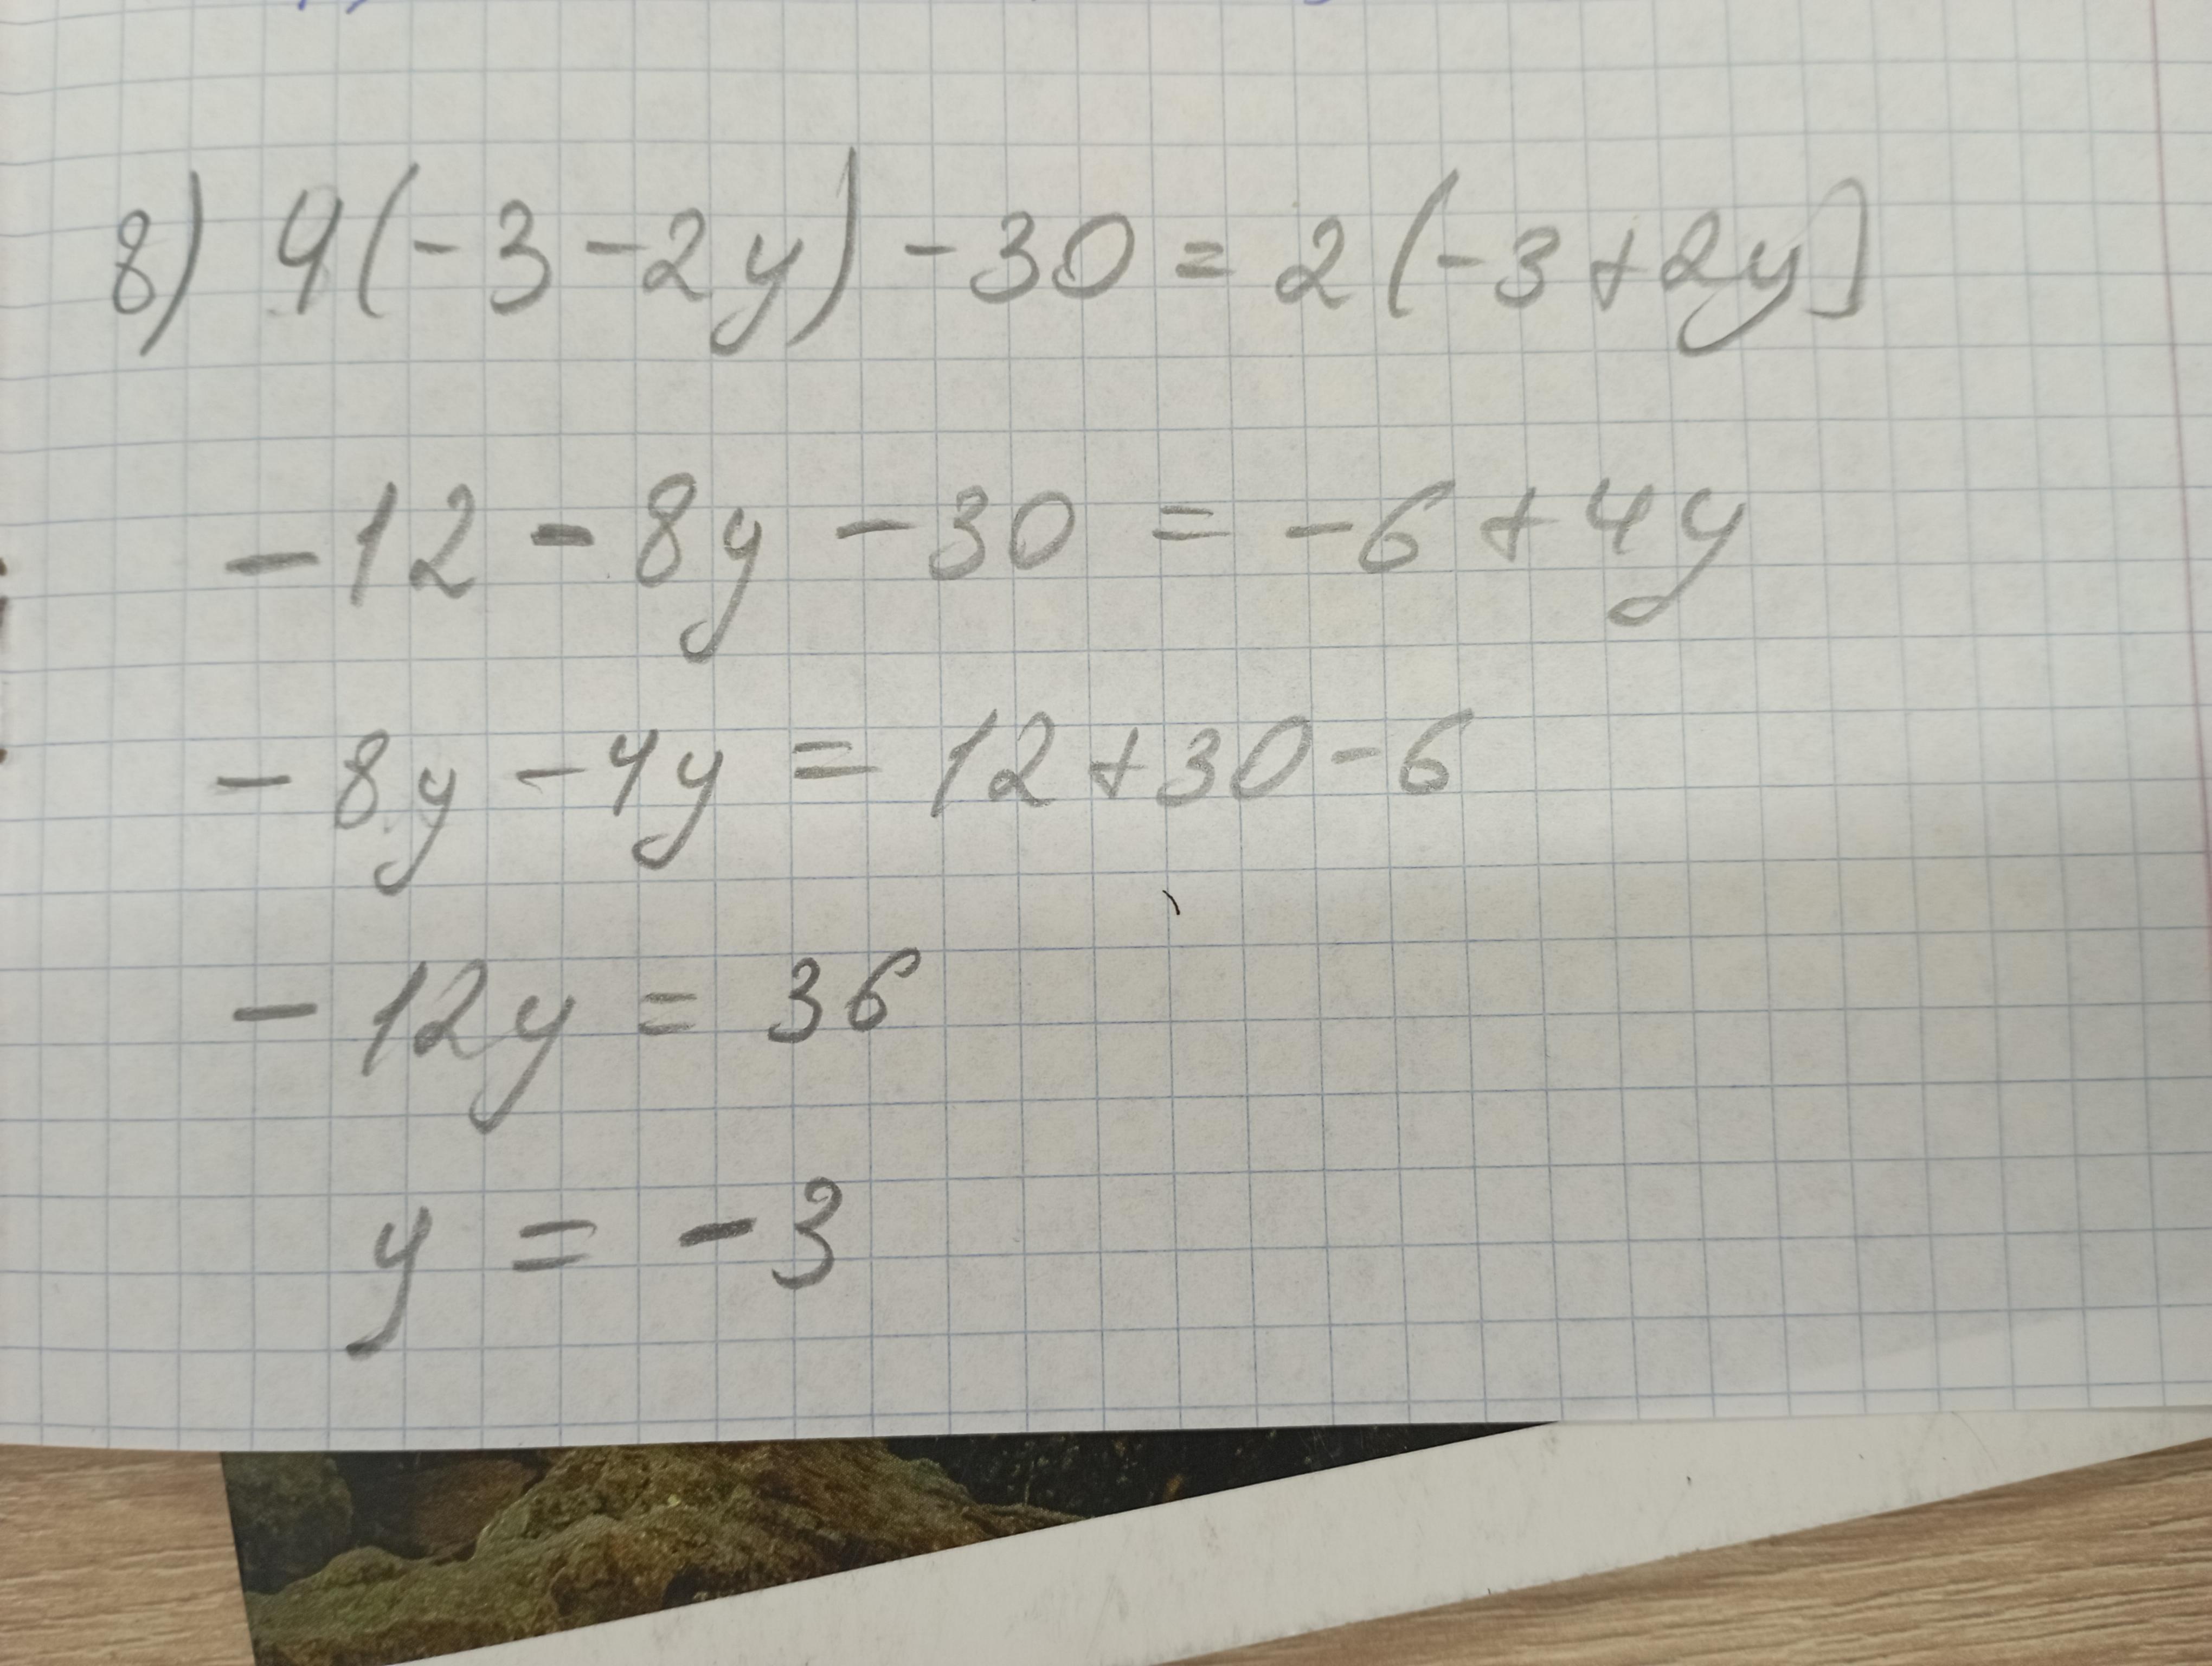 8) 4(-3-2y)-30=2(-3+2y]
-12-8y-30=-6+4y
-8y-4y=12+30-6
-12y=36
y=-3